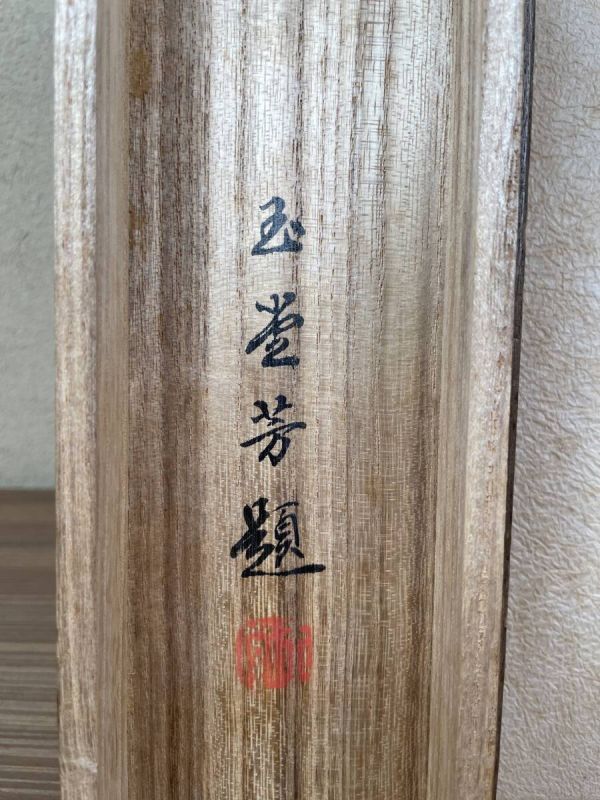 玉堂芳題